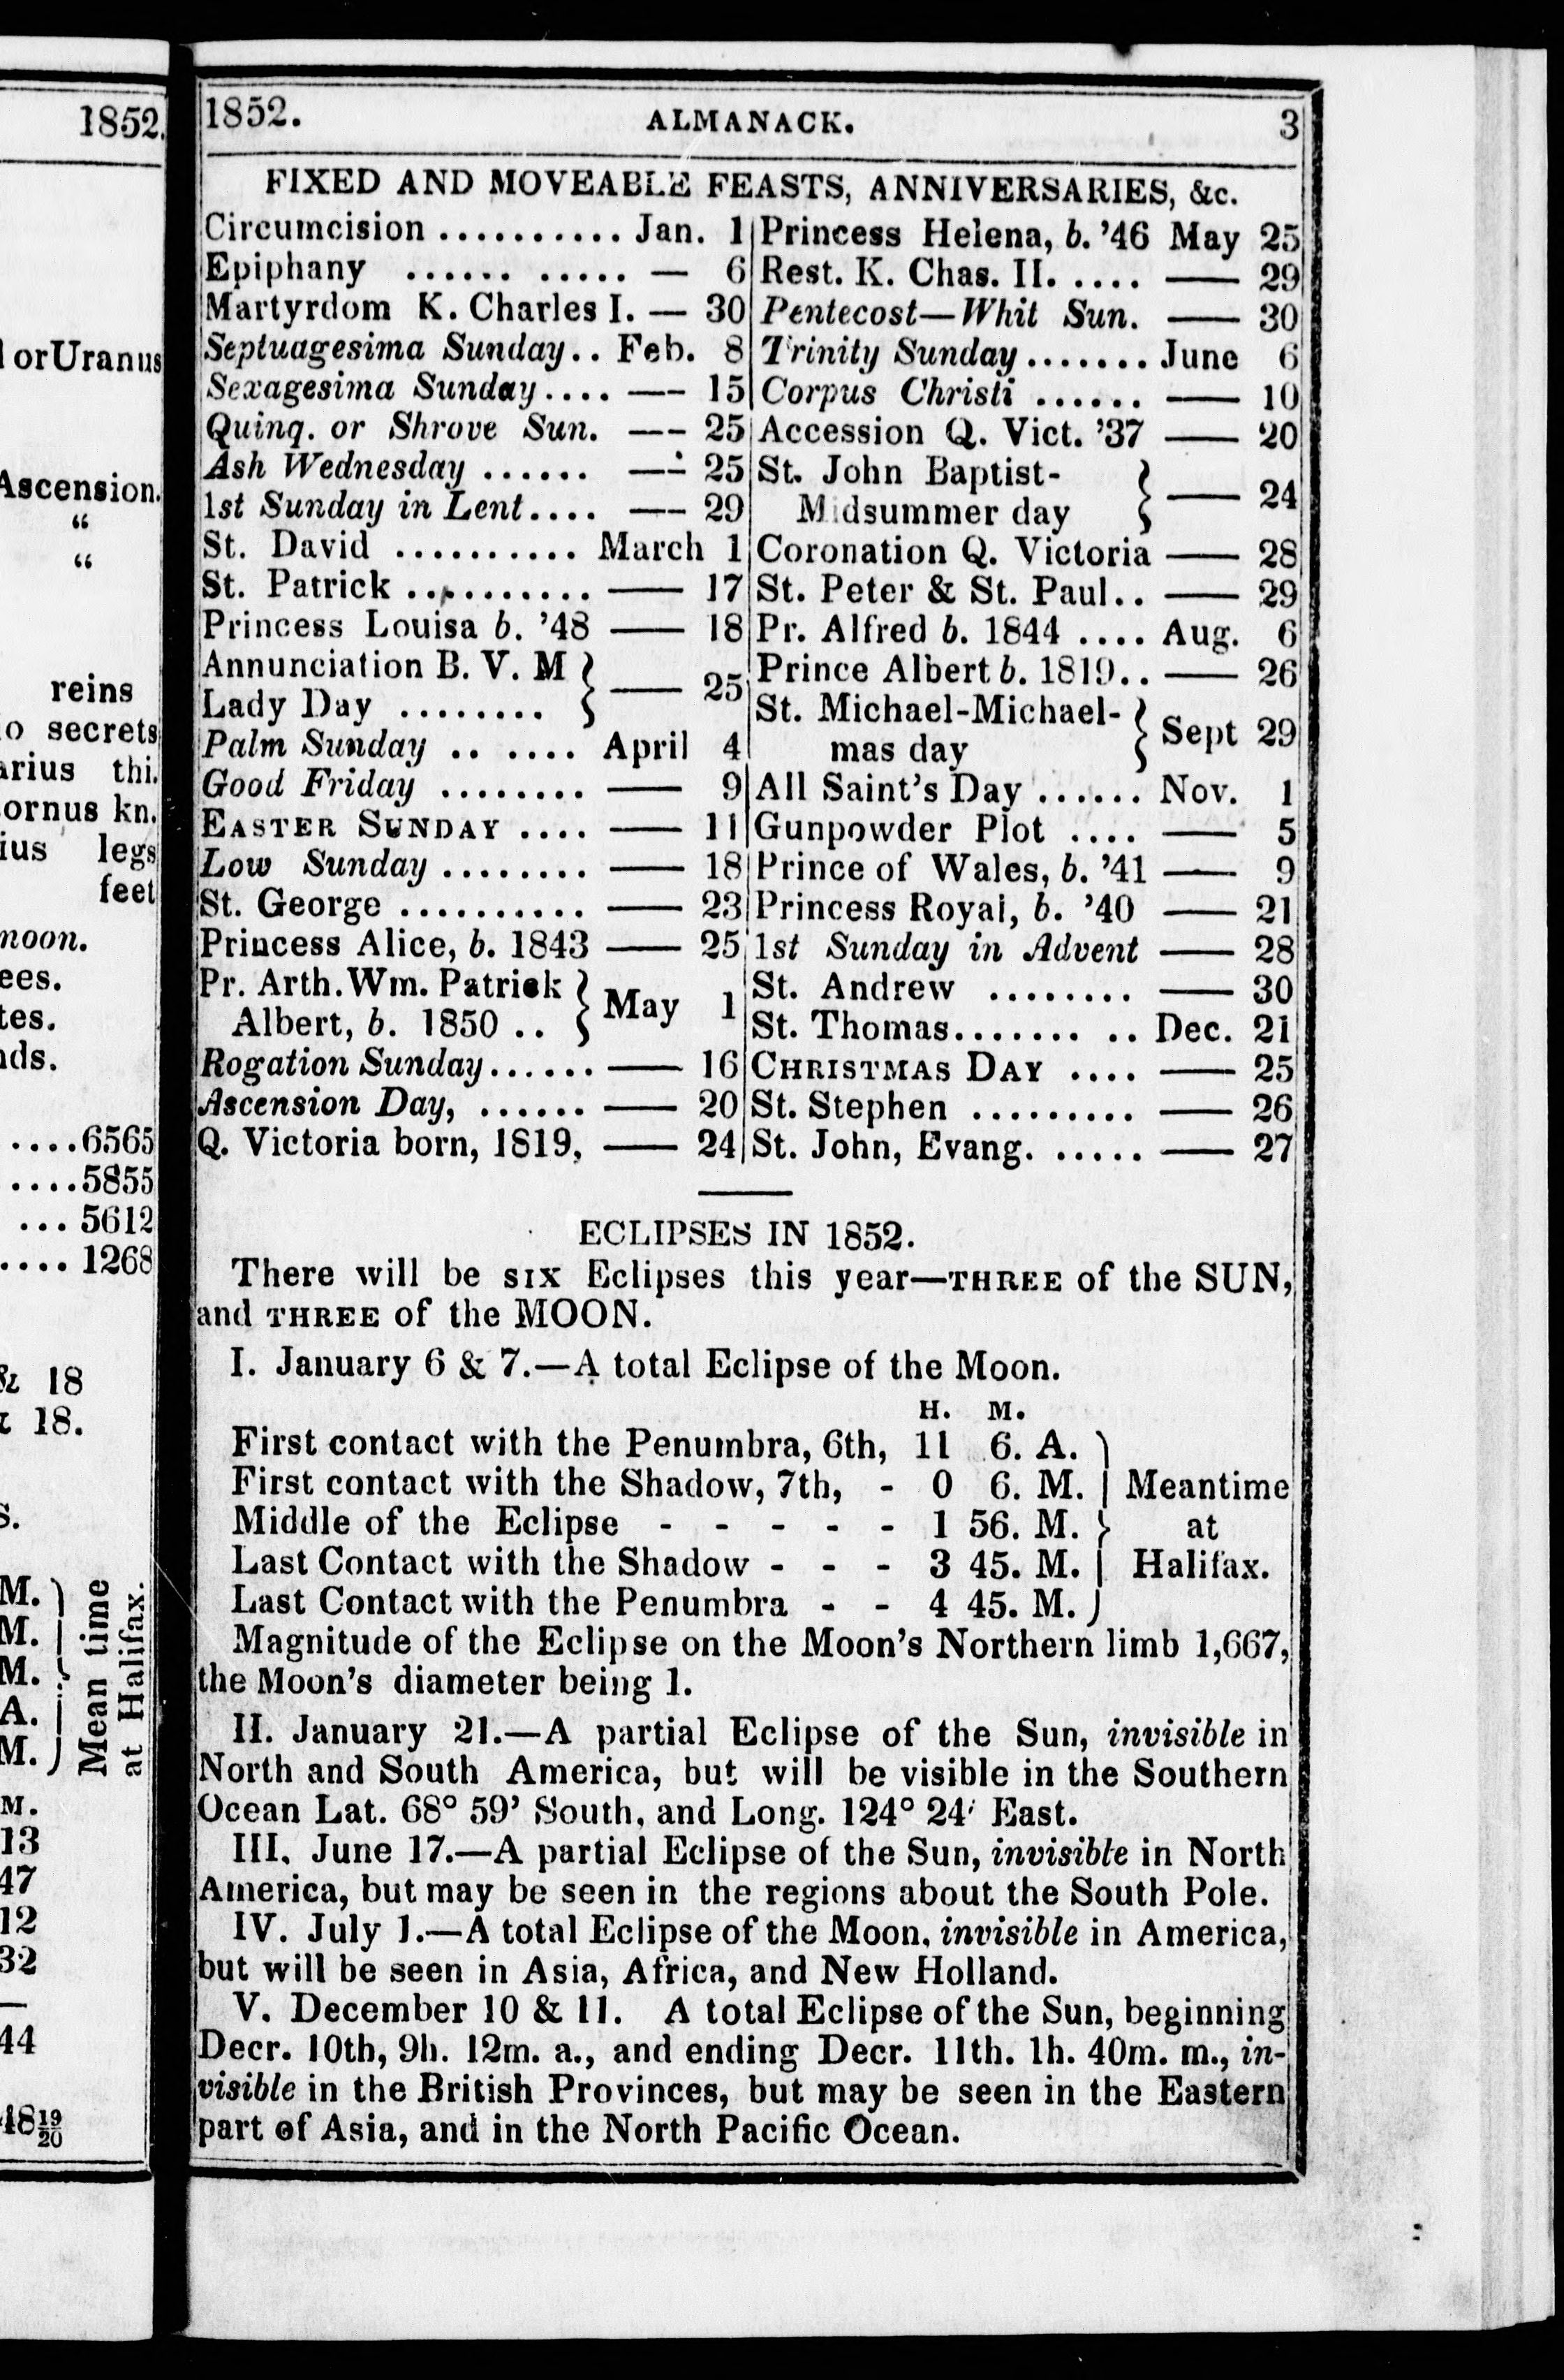 1852.
orUranus
Ascension.
“
“
reins
secrets
arius thi.
ornus kn.
ius legs
feet
noon.
....6565
....5855
... 5612
.... 1268
& 18
18.
M.
M.
M.
A.
M.
Mean time
at Halifax.
M.
13
47
12
32
44
48 19/20
1852. ALMANACK. 3
FIXED AND MOVEABLE FEASTS, ANNIVERSARIES, &c.
Circumcision .......... Jan. 1
Epiphany ...... ..... — 6
Martyrdom K. Charles I. — 30
Septuagesima Sunday.. Feb. 8
Sexagesima Sunday.... —– 15
Quinq. or Shrove Sun. —– 25
Ash Wednesday ...... —– 25
1st Sunday in Lent.... —– 29
St. David .......... March 1
St. Patrick .......... —— 17
Princess Louisa b. ’48 —— 18
Annunciation B. V. M
Lady Day ........ } —— 25
Palm Sunday .. .... April 4
Good Friday ........ —— 9
EASTER SUNDAY .... —— 11
Low Sunday ........ —— 18
St. George .......... —— 23
Princess Alice, b. 1843 —— 25
Pr. Arth. Wm. Patrick
Albert, b. 1850 .. } May 1
Rogation Sunday...... —— 16
Ascension Day, ...... —— 20
Q. Victoria born, 1819, —— 24
Princess Helena, b. ’46 May 25
Rest. K. Chas. II. .... —— 29
Pentecost—Whit Sun. —— 30
Trinity Sunday....... June 6
Corpus Christi ...... —— 10
Accession Q. Vict. ’37 —— 20
St. John Baptist-
Midsummer day } —— 24
Coronation Q. Victoria —— 28
St. Peter & St. Paul.. —— 29
Pr. Alfred b. 1844 .... Aug. 6
Prince Albert b. 1819.. —— 26
St. Michael-Michael-
mas day } Sept 29
All Saint’s Day ...... Nov. 1
Gunpowder Plot .... —— 5
Prince of Wales, b. ’41 —— 9
Princess Royal, b. ’40 —— 21
1st Sunday in Advent —— 28
St. Andrew ........ —— 30
St. Thomas....... .. Dec. 21
CHRISTMAS DAY .... —— 25
St. Stephen ......... —— 26
St. John, Evang. ..... —— 27
ECLIPSES IN 1852.
There will be SIX Eclipses this year—THREE of the SUN,
and THREE of the MOON.
I. January 6 & 7.—A total Eclipse of the Moon.
H. M.
First contact with the Penumbra, 6th, 11 6. A.
First contact with the Shadow, 7th, - 0 6. M. Meantime
Middle of the Eclipse - - - - - 1 56. M. } at
Last Contact with the Shadow - - - 3 45. M. Halifax.
Last Contact with the Penumbra - - 4 45. M.
Magnitude of the Eclipse on the Moon’s Northern limb 1,667,
the Moon’s diameter being 1.
II. January 21.—A partial Eclipse of the Sun, invisible in
North and South America, but will be visible in the Southern
Ocean Lat. 68° 59’ South, and Long. 124° 24’ East.
III. June 17.—A partial Eclipse of the Sun, invisible in North
America, but may be seen in the regions about the South Pole.
IV. July 1.—A total Eclipse of the Moon, invisible in America,
but will be seen in Asia, Africa, and New Holland.
V. December 10 & 11. A total Eclipse of the Sun, beginning
Decr. 10th, 9h. 12m. a., and ending Decr. 11th. 1h. 40m. m., in-
visible in the British Provinces, but may be seen in the Eastern
part of Asia, and in the North Pacific Ocean.